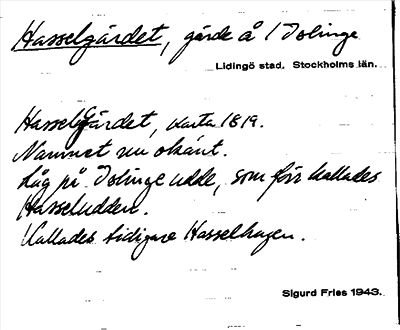 Hasselgärdet, gärde å 1 Islinge
Lidingö stad. Stockholms län.
HasselGärdet, karta 1819.
Namnet nu okänt.
Låg på Islinge udde, som förr kallades
Hasseludden.
Kallades tidigare Hasselhagen.
Sigurd Fries 1943.